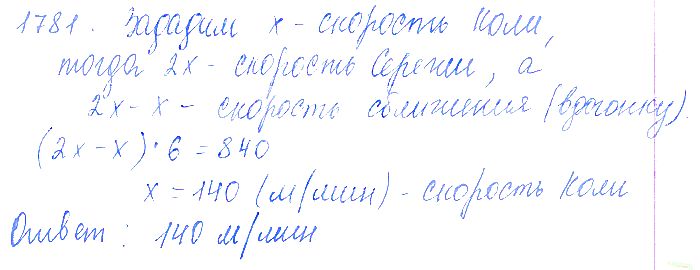 1781. Зададим x - скорость Коли,
тогда 2x - скорость Сережи, а
2x - x - скорость сближения (вдогонку).
(2x - x) · 6 = 840
x = 140 (м/мин) - скорость Коли
Ответ: 140 м/мин